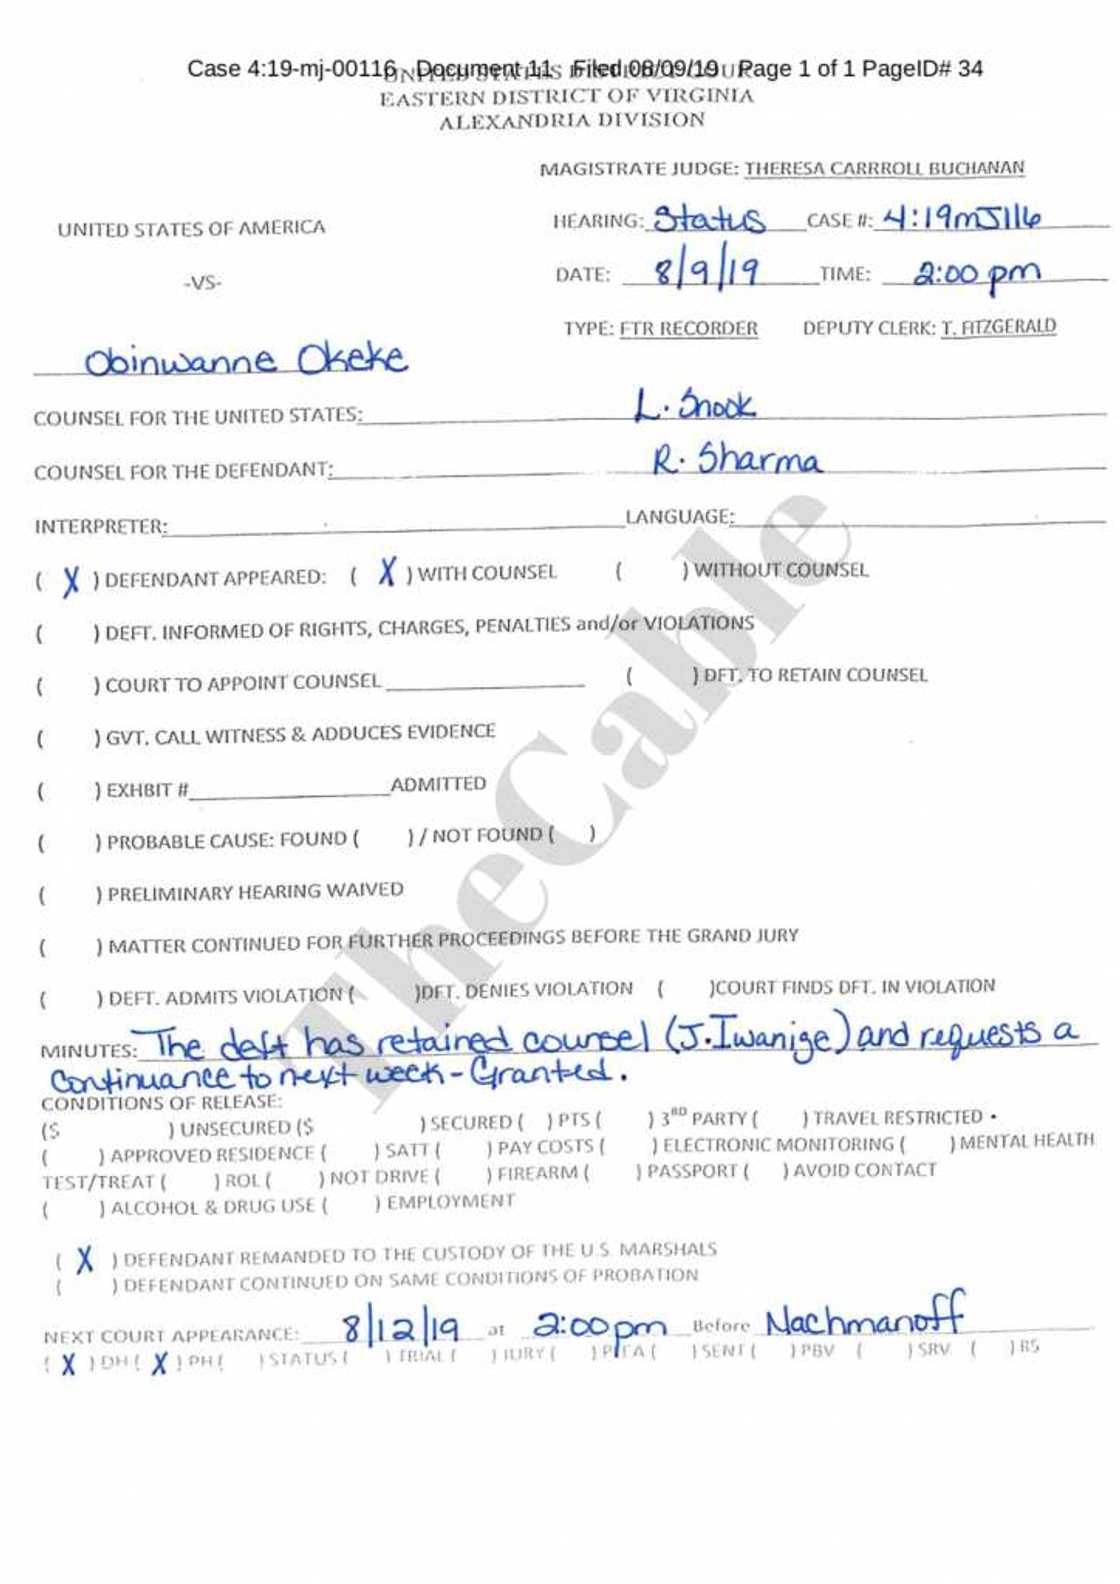 Case 4:19-mj-00116 Document 11 Filed 08/09/19 Page 1 of 1 PageID# 34
UNITED STATES DISTRICT COUR
EASTERN DISTRICT OF VIRGINIA
ALEXANDRIA DIVISION
MAGISTRATE JUDGE: THERESA CARRROLL BUCHANAN
HEARING: Status CASE #: 4:19mJ116
UNITED STATES OF AMERICA
-VS-
DATE: 8/9/19 TIME: 2:00 pm
TYPE: FTR RECORDER DEPUTY CLERK: T. FITZGERALD
Obinwanne Okeke
COUNSEL FOR THE UNITED STATES: L. Snook
COUNSEL FOR THE DEFENDANT: R. Sharma
INTERPRETER: LANGUAGE:
( X ) DEFENDANT APPEARED: ( X ) WITH COUNSEL ( ) WITHOUT COUNSEL
( ) DEFT. INFORMED OF RIGHTS, CHARGES, PENALTIES and/or VIOLATIONS
( ) COURT TO APPOINT COUNSEL ( ) DFT. TO RETAIN COUNSEL
( ) GVT. CALL WITNESS & ADDUCES EVIDENCE
( ) EXHBIT # ADMITTED
( ) PROBABLE CAUSE: FOUND ( ) / NOT FOUND ( )
( ) PRELIMINARY HEARING WAIVED
( ) MATTER CONTINUED FOR FURTHER PROCEEDINGS BEFORE THE GRAND JURY
( ) DEFT. ADMITS VIOLATION ( )DFT. DENIES VIOLATION ( )COURT FINDS DFT. IN VIOLATION
MINUTES: The deft has retained counsel (J.Iwanige) and requests a
continuance to next week - Granted.
CONDITIONS OF RELEASE:
($ ) UNSECURED ($ ) SECURED ( ) PTS ( ) 3RD PARTY ( ) TRAVEL RESTRICTED •
( ) APPROVED RESIDENCE ( ) SATT ( ) PAY COSTS ( ) ELECTRONIC MONITORING ( ) MENTAL HEALTH
TEST/TREAT ( ) ROL ( ) NOT DRIVE ( ) FIREARM ( ) PASSPORT ( ) AVOID CONTACT
( ) ALCOHOL & DRUG USE ( ) EMPLOYMENT
( X ) DEFENDANT REMANDED TO THE CUSTODY OF THE U.S. MARSHALS
( ) DEFENDANT CONTINUED ON SAME CONDITIONS OF PROBATION
NEXT COURT APPEARANCE: 8/12/19 at 2:00 pm Before Nachmanoff
( X ) DH ( X ) PH ( ) STATUS ( ) TRIAL ( ) JURY ( ) PLEA ( ) SENT ( ) PBV ( ) SRV ( ) RS
TheCable